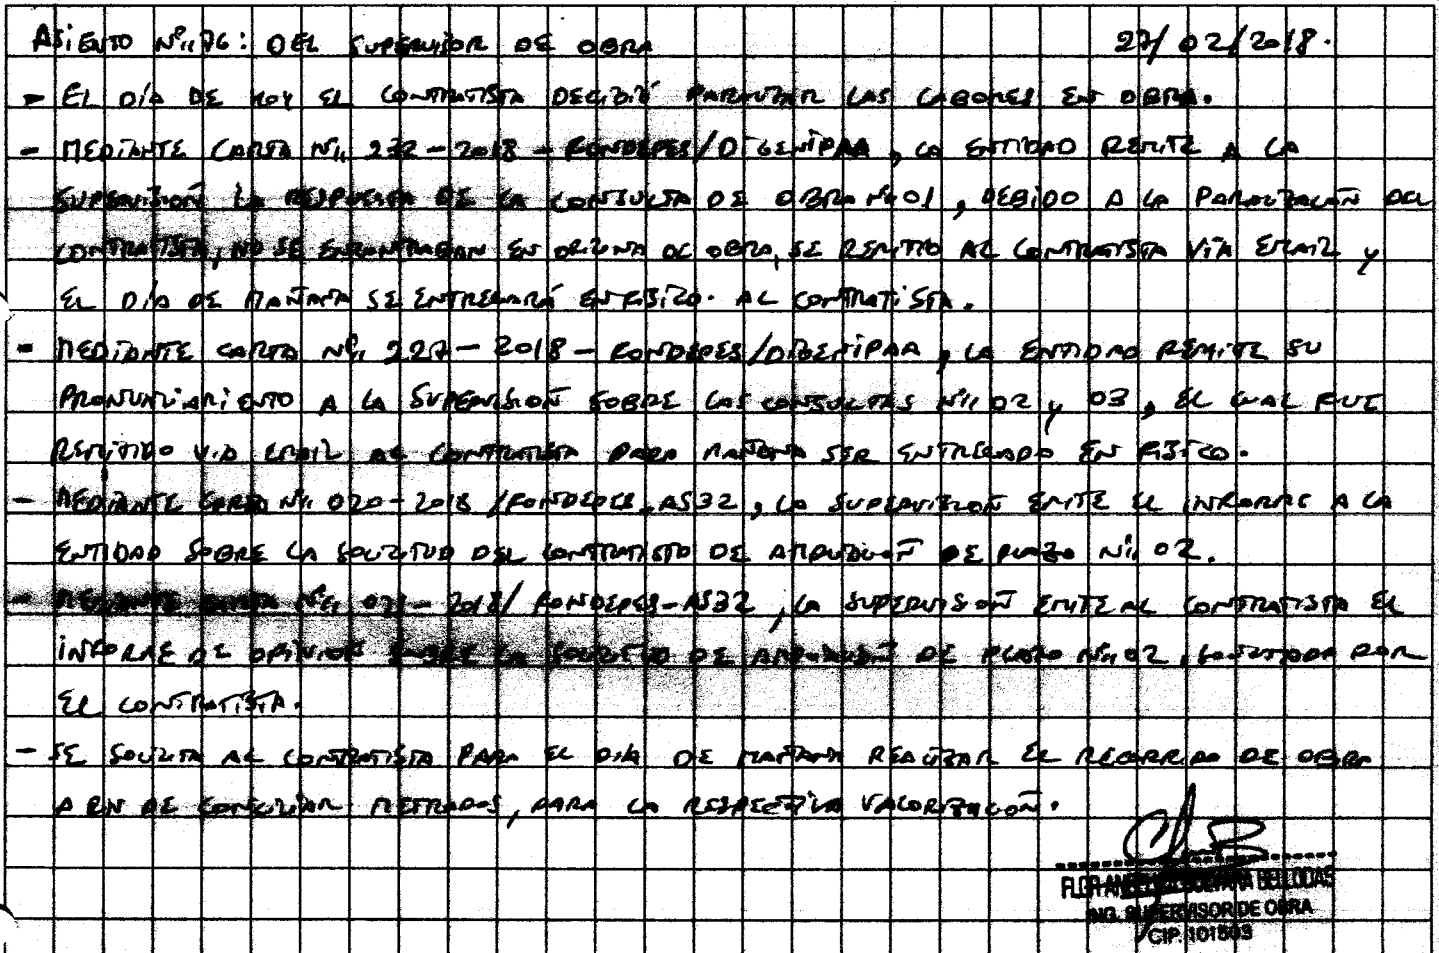 ASIENTO Nº 76: DEL SUPERVISOR DE OBRA 27/02/2018.
- EL DÍA DE HOY EL CONTRATISTA DECIDIÓ PARALIZAR LAS LABORES EN OBRA.
- MEDIANTE CARTA Nº 232-2018-FONDEPES/DIGENIPAA, LA ENTIDAD REMITE A LA
SUPERVISIÓN LA RESPUESTA DE LA CONSULTA DE OBRA Nº 01, DEBIDO A LA PARALIZACIÓN DEL
CONTRATISTA, NO SE ENCONTRABAN EN OFICINA DE OBRA, SE REMITIO AL CONTRATISTA VÍA EMAIL Y
EL DÍA DE MAÑANA SE ENTREGARÁ EN FISICO. AL CONTRATISTA.
- MEDIANTE CARTA Nº 227-2018-FONDEPES/DIGENIPAA, LA ENTIDAD REMITE SU
PRONUNCIAMIENTO A LA SUPERVISIÓN SOBRE LAS CONSULTAS Nº 02 Y 03, EL CUAL FUE
REMITIDO VIA EMAIL AL CONTRATISTA PARA MAÑANA SER ENTREGADO EN FISICO.
- MEDIANTE CARTA Nº 020-2018/FONDEPES-AS32, LA SUPERVISION EMITE EL INFORME A LA
ENTIDAD SOBRE LA SOLICITUD DEL CONTRATISTA DE AMPLIACIÓN DE PLAZO Nº 02.
- MEDIANTE CARTA Nº 021-2018/FONDEPES-AS32, LA SUPERVISIÓN EMITE AL CONTRATISTA EL
INFORME DE OPINIÓN SOBRE LA SOLICITUD DE AMPLIACIÓN DE PLAZO Nº 02, SOLICITADA POR
EL CONTRATISTA.
- SE SOLICITA AL CONTRATISTA PARA EL DIA DE MAÑANA REALIZAR EL RECORRIDO DE OBRA
A FIN DE CONCILIAR METRADOS, PARA LA RESPECTIVA VALORIZACIÓN.
FLOR BELLODAS
ING. SUPERVISOR DE OBRA
CIP. 101503